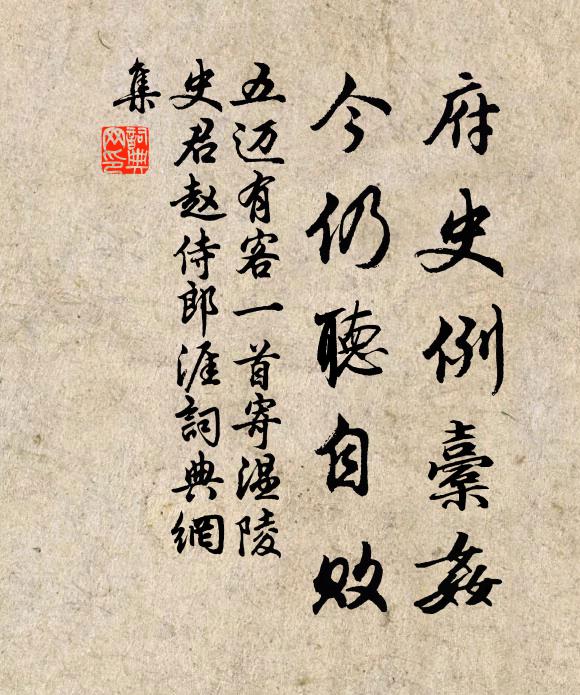 府史例橐姦
今仍聽自敗
五迈有客一首寄温陵
史君赵侍郎涯詞典網
集
詞典网印